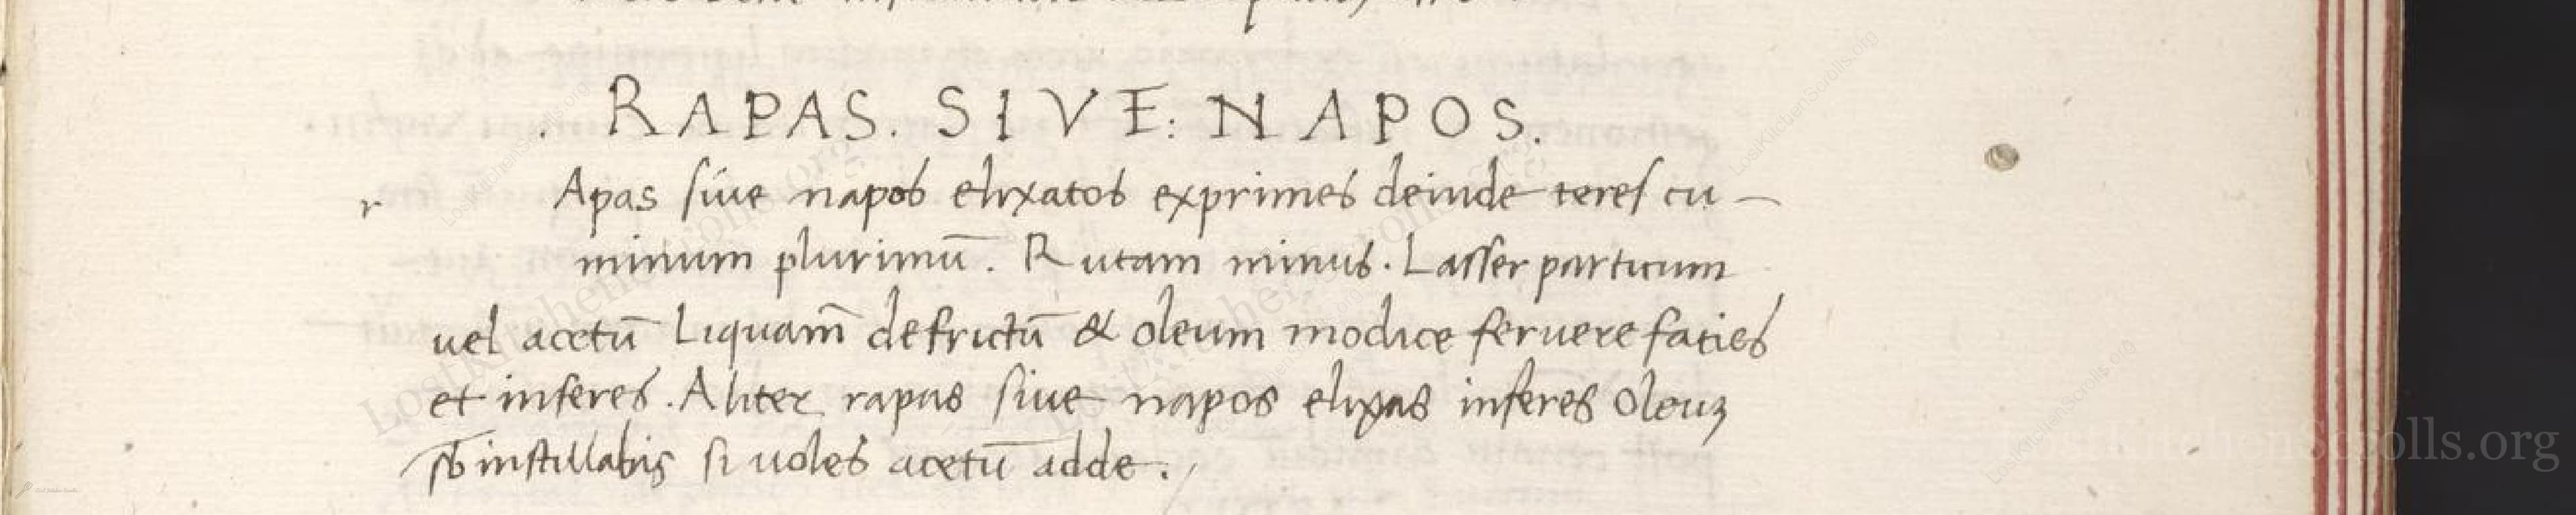 . RAPAS. SIVE: NAPOS.
r Apas siue napos elixatos exprimes deinde teres cu-
minum plurimū. Rutam minus. Lasser particum
uel acetū Liquam̄ defrictū & oleum modice feruere faties
et inferes. Aliter rapas siue napos elixas inferes Oleuʒ
instillabis si uoles acetū adde.
LostKitchenScrolls.org